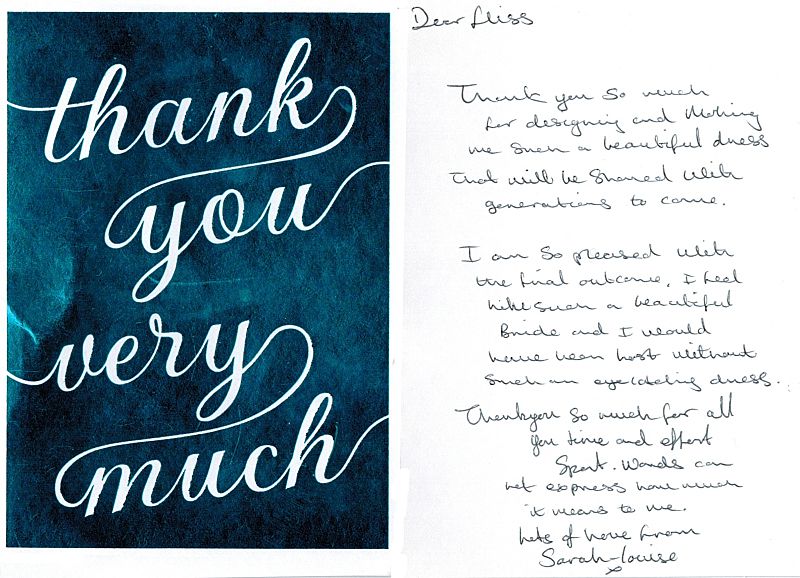 thank
you
very
much
Dear Fliss
Thank you so much
for designing and Making
me such a beautiful dress
that will be shared with
generations to come.
I am so pleased with
the final outcome, I feel
like such a beautiful
Bride and I would
have been lost without
such an eyecatching dress.
Thankyou so much for all
you time and effort
spent. Words can
not express how much
it means to me.
Lots of love from
Sarah-Louise
x